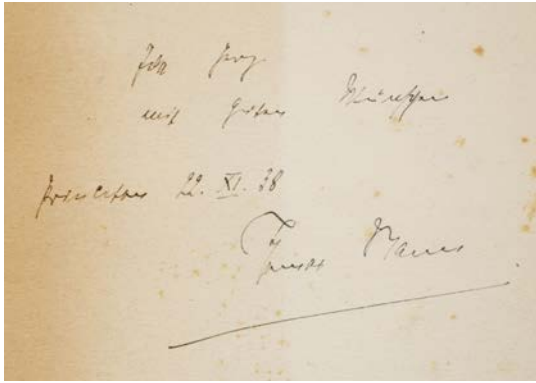 mit guten Wünschen
Princeton 22. XI. 38
Thomas Mann